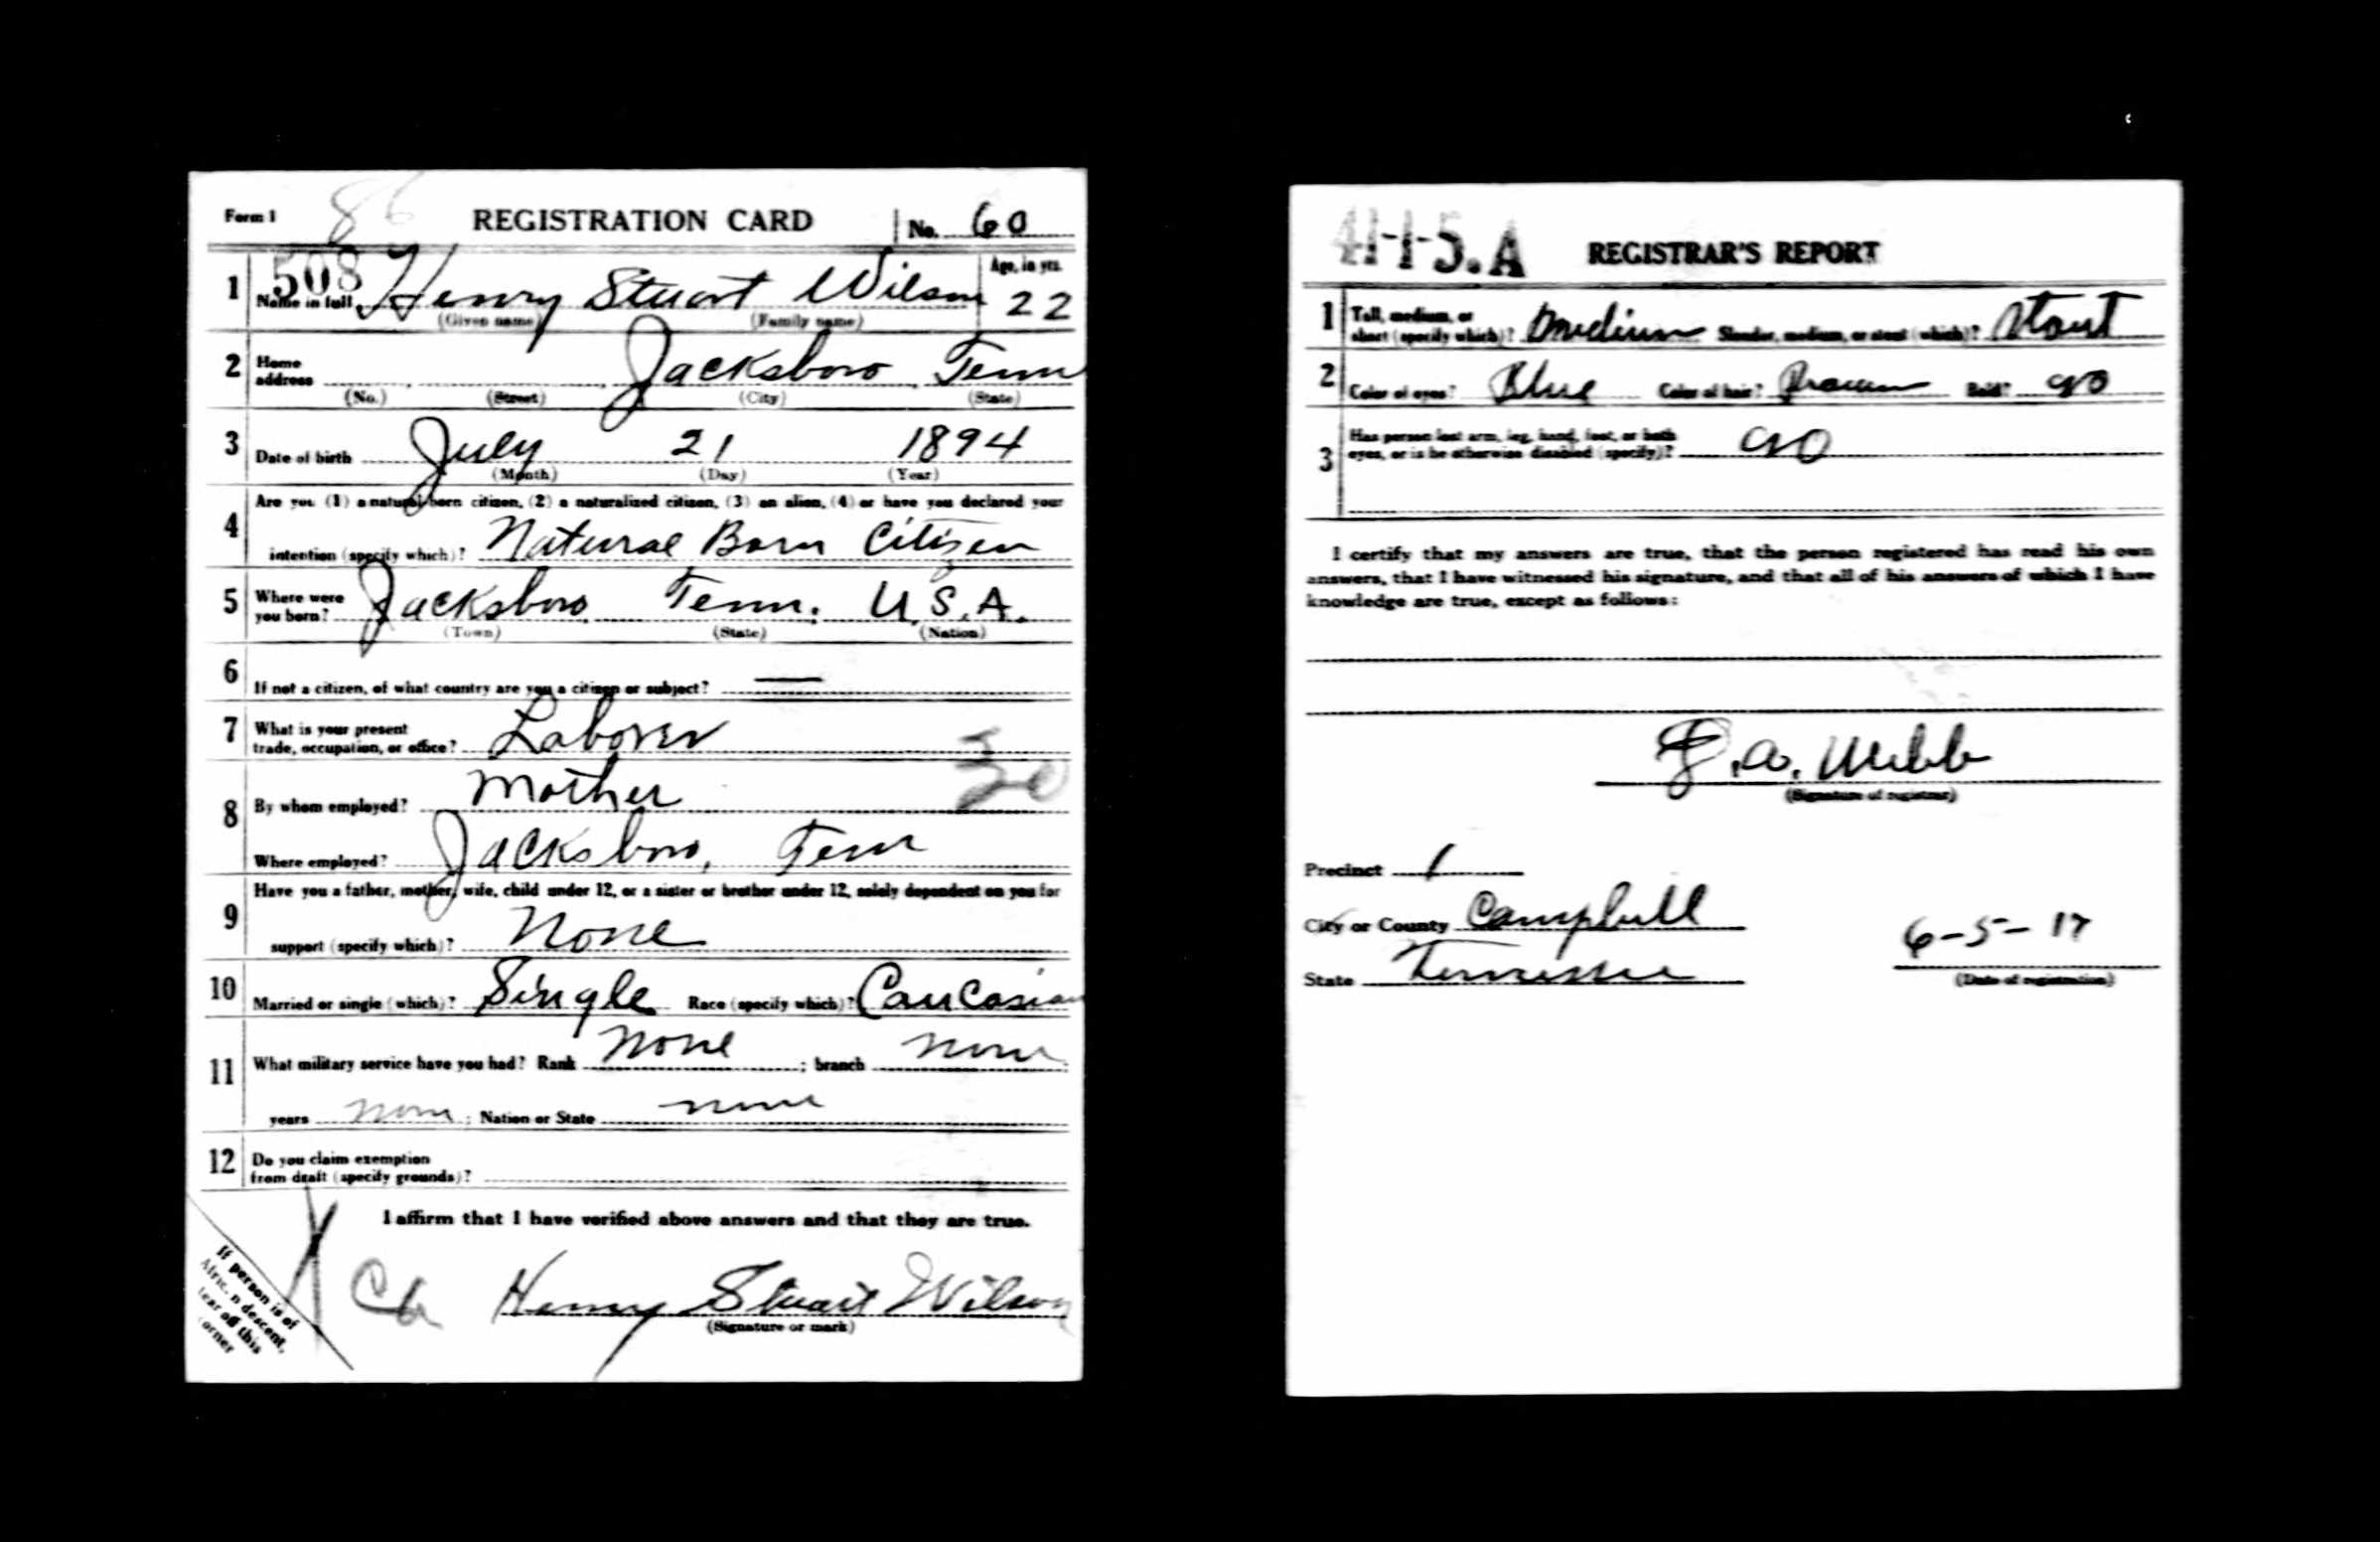 Form 1 86 REGISTRATION CARD No. 60
1 508 Name in full Henry Stuart Wilson Age, in yrs. 22
(Given name) (Family name)
2 Home address Jacksboro Tenn
(No.) (Street) (City) (State)
3 Date of birth July 21 1894
(Month) (Day) (Year)
4 Are you (1) a natural-born citizen, (2) a naturalized citizen, (3) an alien, (4) or have you declared your
intention (specify which)? Natural Born Citizen
5 Where were you born? Jacksboro Tenn. U.S.A.
(Town) (State) (Nation)
6 If not a citizen, of what country are you a citizen or subject? —
7 What is your present trade, occupation, or office? Laborer
8 By whom employed? Mother 30
Where employed? Jacksboro, Tenn
9 Have you a father, mother, wife, child under 12, or a sister or brother under 12, solely dependent on you for
support (specify which)? None
10 Married or single (which)? Single Race (specify which)? Caucasian
11 What military service have you had? Rank none ; branch none ;
years none ; Nation or State none
12 Do you claim exemption
from draft (specify grounds)?
I affirm that I have verified above answers and that they are true.
Henry Stuart Wilson
(Signature or mark)
If person is of
descent,
tear off this
corner
41-1-5.A REGISTRAR'S REPORT
1 Tall, medium, or short (specify which)? Medium Slender, medium, or stout (which)? Stout
2 Color of eyes? Blue Color of hair? Brown Bald? No
3 Has person lost arm, leg, hand, foot, or both
eyes, or is he otherwise disabled (specify)? No
I certify that my answers are true, that the person registered has read his own
answers, that I have witnessed his signature, and that all of his answers of which I have
knowledge are true, except as follows:
Webb
(Signature of registrar)
Precinct 1
City or County Campbell
6-5-17
State Tennessee
(Date of registration)